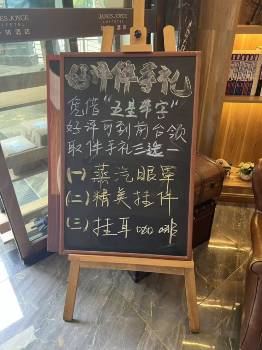 JAMES JOYCE
COFFETEL
JAMES JOYCE
好评伴手礼
凭借“五星带字”
好评可到前台领
取伴手礼三选一
(一)蒸汽眼罩
(二)精美挂件
(三)挂耳咖啡